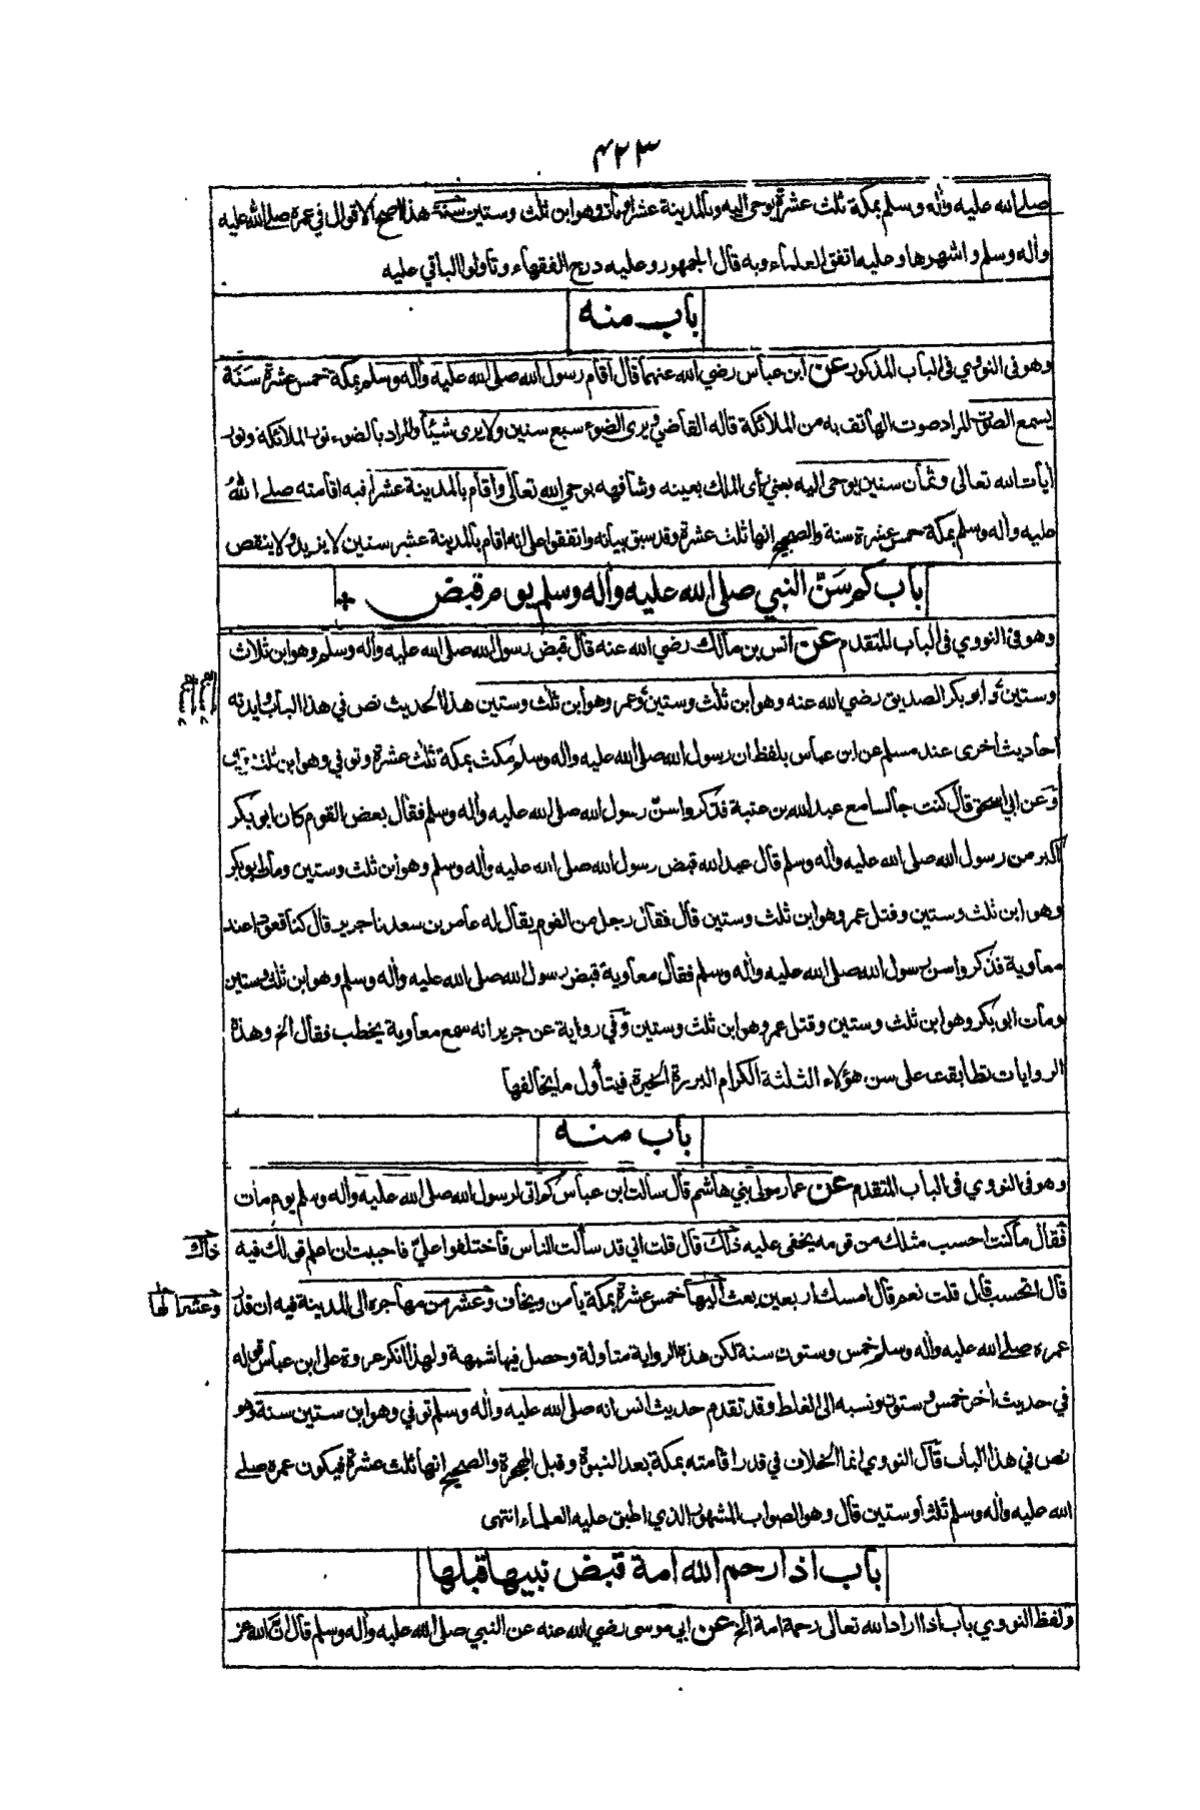 ۴۲۳
صلى الله عليه واٰله وسلم بمكة ثلث عشرة يوحى اليه وبالمدينة عشرا ومات وهو ابن ثلث وستين سنة هذا اصح الاقوال في عمره صلى الله عليه
واٰله وسلم واشهرها وعليه اتفق العلماء وبه قال الجمهور وعليه درج الفقهاء وتأولوا الباقي عليه
باب منه
وهو فى النووي في الباب المذكور عن ابن عباس رضي الله عنهما قال اقام رسول الله صلى الله عليه واٰله وسلم بمكة خمس عشرة سَنَة
يسمع الصوت المراد صوت الهاتف به من الملائكة قاله القاضي ويرى الضوء سبع سنين ولا يرى شيئا والمراد بالضوء نور الملائكة ونور
اٰيات الله تعالى وثمان سنين يوحى اليه يعني رأى الملك بعينه وشافهه بوحي الله تعالى واقام بالمدينة عشرا فيه اقامته صلى الله
عليه واٰله وسلم بمكة خمس عشرة سنة والصحيح انها ثلث عشرة وقد سبق بيانه واتفقوا على انه اقام بالمدينة عشر سنين لا يزيد ولا ينقص
باب كم سَنّ النبي صلى الله عليه واٰله وسلم يوم قبض
وهو فى النووي فى الباب المتقدم عن انس بن مالك رضي الله عنه قال قبض رسول الله صلى الله عليه واٰله وسلم وهو ابن ثلاث
وستين وابو بكر الصديق رضي الله عنه وهو ابن ثلث وستين وعمر وهو ابن ثلث وستين هذا الحديث نص في هذا الباب وايدته
احاديث اخرى عند مسلم عن ابن عباس بلفظ ان رسول الله صلى الله عليه واٰله وسلم مكث بمكة ثلث عشرة وتوفي وهو ابن ثلث
وعن ابي اسحق قال كنت جالسا مع عبد الله بن عتبة فذكروا سنّ رسول الله صلى الله عليه واٰله وسلم فقال بعض القوم كان ابو بكر
اكبر من رسول الله صلى الله عليه واٰله وسلم قال عبد الله قبض رسول الله صلى الله عليه واٰله وسلم وهو ابن ثلث وستين ومات ابو بكر
وهو ابن ثلث وستين وقتل عمر وهو ابن ثلث وستين قال فقال رجل من القوم يقال له عامر بن سعد نا جرير قال كنا قعودا عند
معاوية فذكروا سن رسول الله صلى الله عليه واٰله وسلم فقال معاوية قبض رسول الله صلى الله عليه واٰله وسلم وهو ابن ثلث وستين
ومات ابو بكر وهو ابن ثلث وستين وقتل عمر وهو ابن ثلث وستين وفي رواية عن جرير انه سمع معاوية يخطب فقال الخ وهذه
الروايات تطابقت على سن هؤلاء الثلثة الكرام البررة الخيرة فيتأول ما يخالفها
باب منه
وهو فى النووي فى الباب المتقدم عن عمار مولى بني هاشم قال سألت ابن عباس كم اتى لرسول الله صلى الله عليه واٰله وسلم يوم مات
فقال ما كنت احسب مثلك من قومه يخفى عليه ذلك قال قلت اني قد سألت الناس فاختلفوا عليّ فاحببت ان اعلم قولك فيه
ذاك
قال اتحسب قال قلت نعم قال امسك اربعين بعث اليها خمس عشرة بمكة يأمن ويخاف وعشر من مهاجره الى المدينة فيه ان قدر
وعشرا لها
عمره صلى الله عليه واٰله وسلم خمس وستون سنة لكن هذه الرواية متأولة وحصل فيها شبهة ولهذا انكر عروة على ابن عباس قوله
في حديث اٰخر خمس وستون ونسبه الى الغلط وقد تقدم حديث انس انه صلى الله عليه واٰله وسلم توفي وهو ابن ستين سنة وهو
نص في هذا الباب قال النووي انما الخلاف في قدر اقامته بمكة بعد النبوة وقبل الهجرة والصحيح انها ثلث عشرة فيكون عمره صلى
الله عليه واٰله وسلم ثلثا وستين قال وهو الصواب المشهور الذي اطبق عليه العلماء انتهى
باب اذا رحم الله امة قبض نبيها قبلها
ولفظ النووي باب اذا اراد الله تعالى رحمة امة الخ عن ابي موسى رضي الله عنه عن النبي صلى الله عليه واٰله وسلم قال انّ الله عز